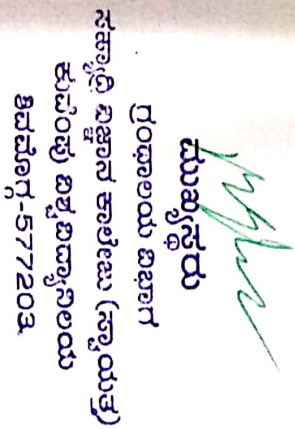 ಮುಖ್ಯಸ್ಥರು
ಗ್ರಂಥಾಲಯ ವಿಭಾಗ
ಸಹ್ಯಾದ್ರಿ ವಿಜ್ಞಾನ ಕಾಲೇಜು (ಸ್ವಾಯತ್ತ)
ಕುವೆಂಪು ವಿಶ್ವವಿದ್ಯಾನಿಲಯ
ಶಿವಮೊಗ್ಗ-577203.